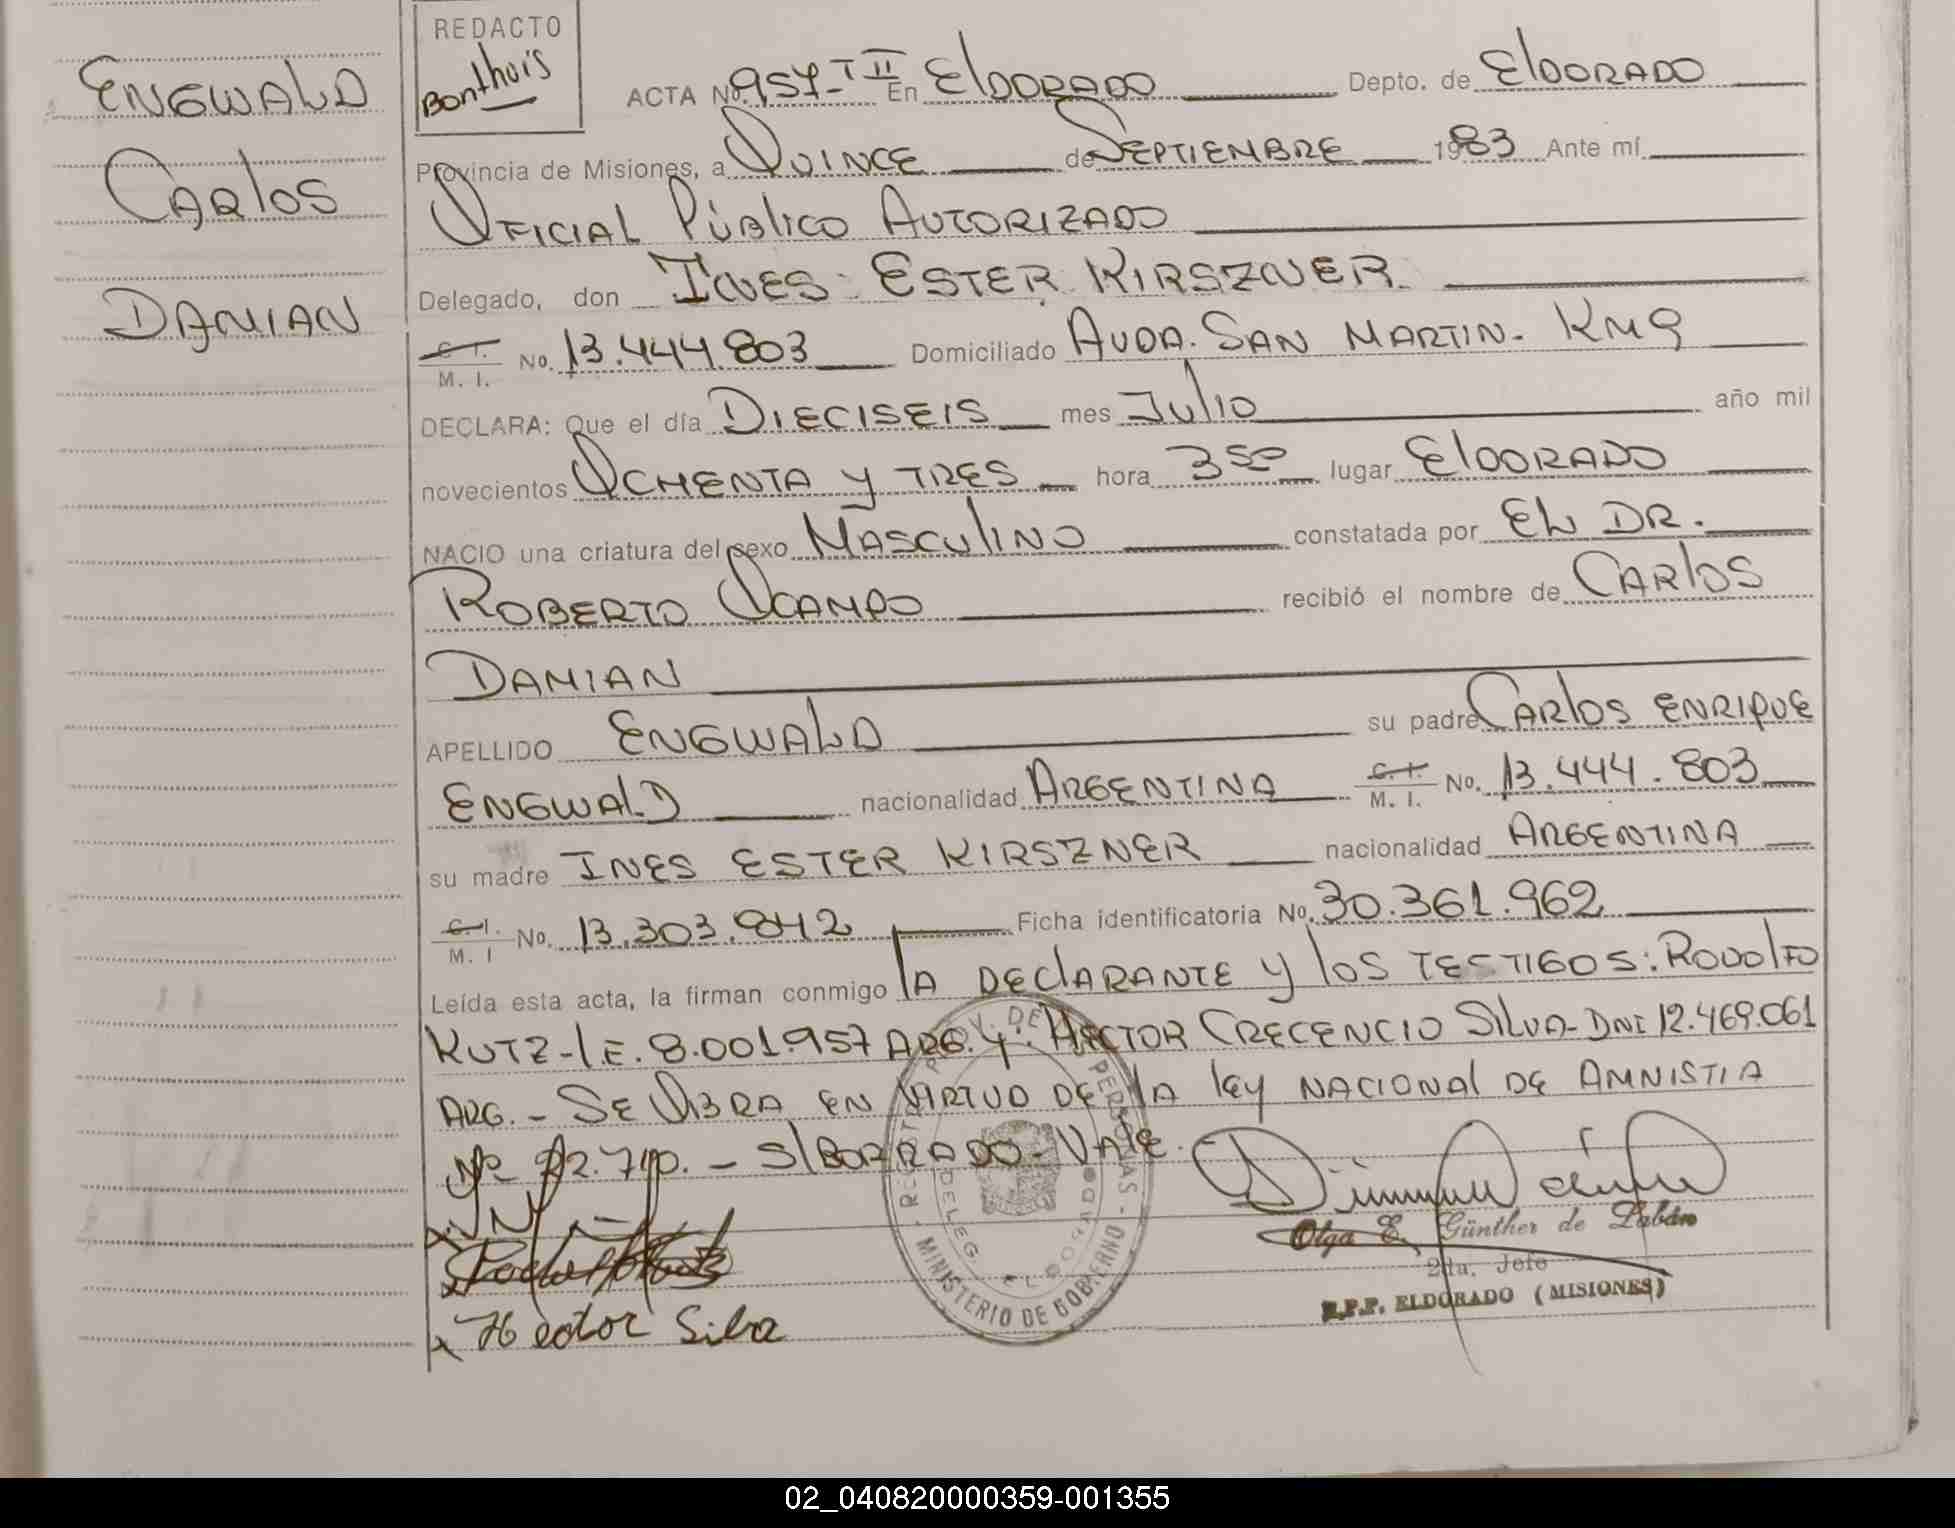 ENGWALD
CARLOS
DAMIAN
REDACTO
Bonthuis
ACTA No. 957-T II En ELDORADO Depto. de ELDORADO
Provincia de Misiones, a QUINCE de SEPTIEMBRE 1983 Ante mí
OFICIAL PÚBLICO AUTORIZADO
Delegado, don INES ESTER KIRSZNER
C. I. M. I. No. 13.444.803 Domiciliado AVDA. SAN MARTIN - KM 9
DECLARA: Que el día DIECISEIS mes JULIO año mil
novecientos OCHENTA Y TRES hora 3 50 lugar ELDORADO
NACIO una criatura del sexo MASCULINO constatada por EL DR.
ROBERTO OCAMPO recibió el nombre de CARLOS
DAMIAN
APELLIDO ENGWALD su padre CARLOS ENRIQUE
ENGWALD nacionalidad ARGENTINA C. I. M. I. No. 13.444.803
su madre INES ESTER KIRSZNER nacionalidad ARGENTINA
C. I. M. I No. 13.303.842 Ficha identificatoria No. 30.361.962
Leída esta acta, la firman conmigo LA DECLARANTE Y LOS TESTIGOS: RODOLFO
KUTZ - L.E. 8.001.957 ARG. Y: HECTOR CRECENCIO SILVA - DNI 12.469.061
ARG. - SE LABRA EN VIRTUD DE LA LEY NACIONAL DE AMNISTIA
Nº 22.710. - S/BORRADO - VALE.
Hector Silva
DELEG. ELDORADO
MINISTERIO DE GOBIERNO
Olga E. Günther de
2da. Jefe
R.P.P. ELDORADO (MISIONES)
02_040820000359-001355